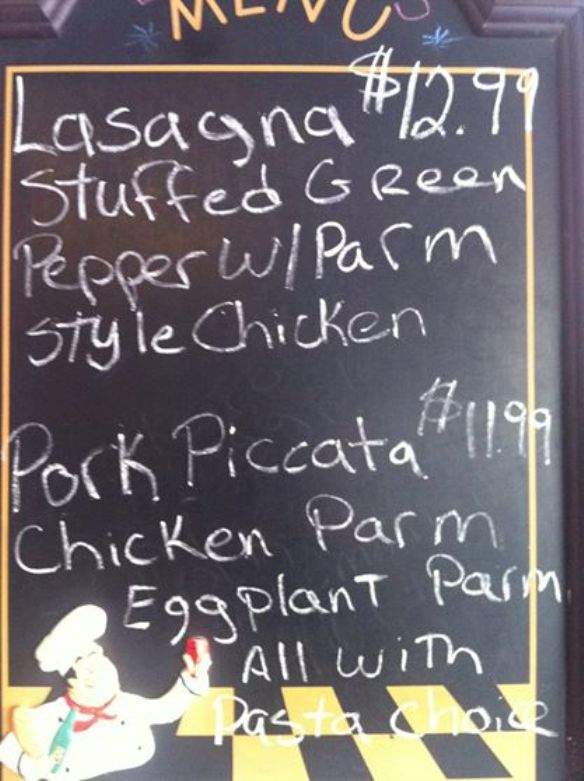 MENU
Lasagna $12.99
Stuffed Green
Pepper w/Parm
Style Chicken
Pork Piccata $11.99
Chicken Parm
Eggplant Parm
All with
Pasta choice